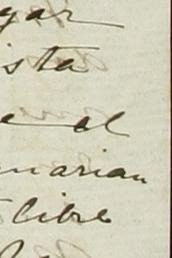 gar
ista
e el
marian
libre